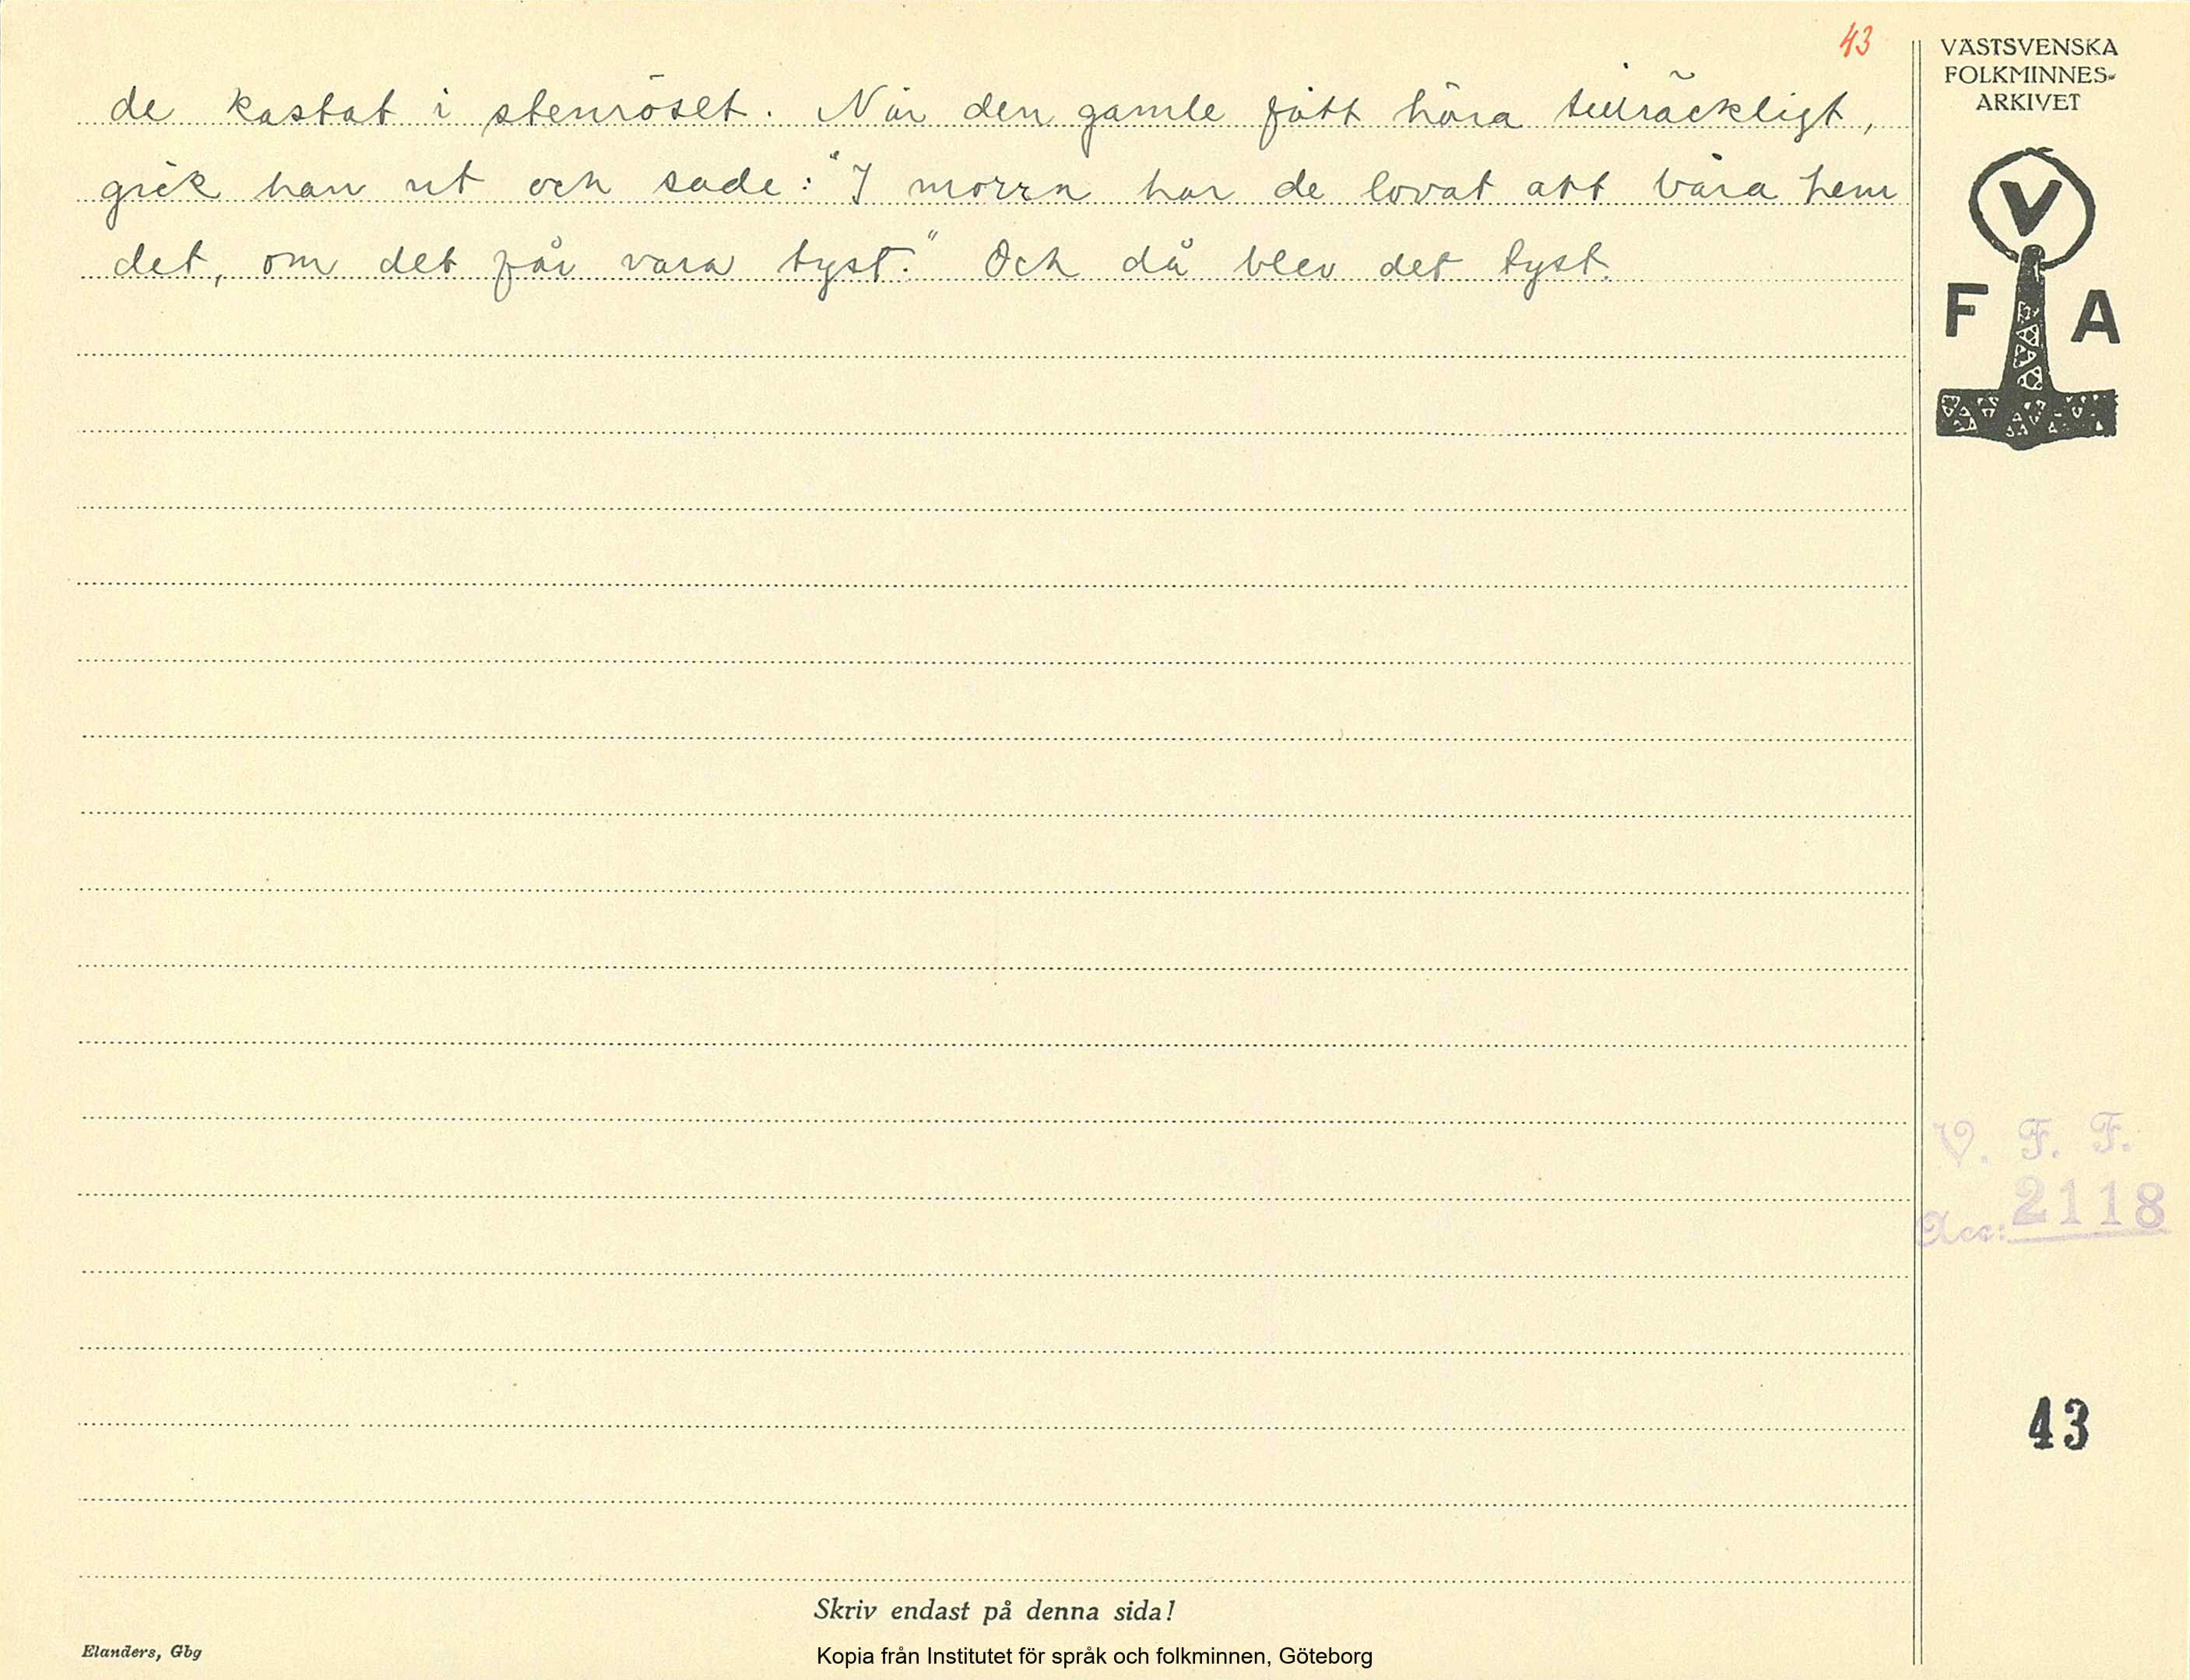 43
de kastat i stenröset. När den gamle fått höra tillräckligt,
gick han ut och sade: "I morrn har de lovat att bära hem
det, om det får vara tyst." Och då blev det tyst.
VÄSTSVENSKA
FOLKMINNES-
ARKIVET
V
F A
V. F. F.
Acc: 2118
43
Skriv endast på denna sida!
Elanders, Gbg
Kopia från Institutet för språk och folkminnen, Göteborg